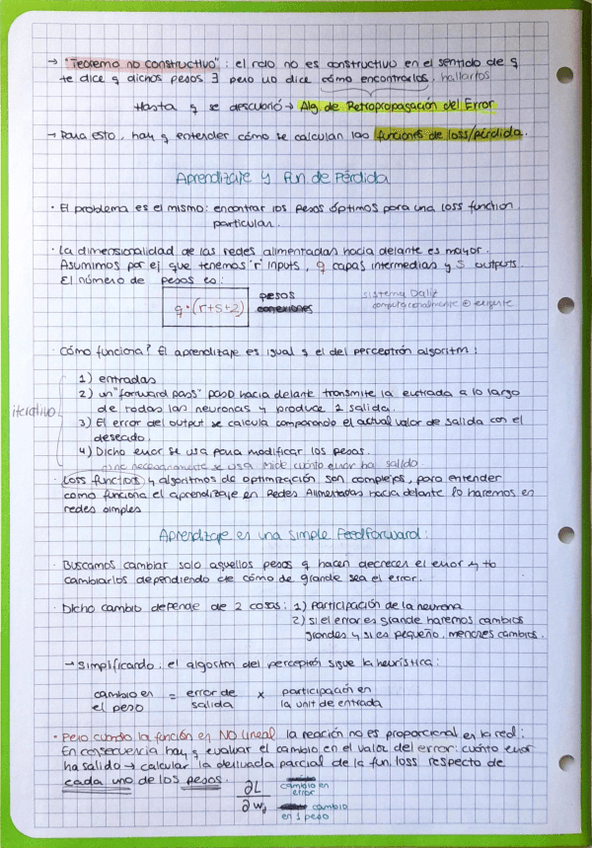 → "Teorema no constructivo": el rdo no es constructivo en el sentido de q
te dice q dichos pesos ∃ pero no dice cómo encontrarlos, hallarlos
Hasta q se descubrió → Alg. de Retropropagación del Error
→ Para esto, hay q entender cómo se calculan las funciones de loss/pérdida.
Aprendizaje y fun de Pérdida
· El problema es el mismo: encontrar los pesos óptimos para una loss function
particular.
· La dimensionalidad de las redes alimentadas hacia delante es mayor.
Asumimos por ej que tenemos 'r' inputs, q capas intermedias y S outputs.
El número de pesos es:
q·(r+s+2)
pesos
conexiones
sistema
computacionalmente
· Cómo funciona? El aprendizaje es igual q el del perceptrón algoritm:
iterativo
1) entradas
2) un "forward pass" paso hacia delante transmite la entrada a lo largo
de todas las neuronas y produce 1 salida.
3) El error del output se calcula comparando el actual valor de salida con el
deseado.
4) Dicho error se usa para modificar los pesos.
se usa mide cuánto error ha salido
· Loss function y algoritmos de optimización son complejos, para entender
como funciona el aprendizaje en Redes Alimentadas hacia delante lo haremos en
redes simples
Aprendizaje es una simple Feedforward:
· Buscamos cambiar solo aquellos pesos q hacen decrecer el error y
cambiarlos dependiendo de cómo de grande sea el error.
· Dicho cambio depende de 2 cosas: 1) participación de la neurona
2) si el error es grande haremos cambios
grandes y si es pequeño, menores cambios.
→ Simplificando, el algoritm del perceptrón sigue la heurística:
cambio en = error de × participación en
el peso salida la unit de entrada
· Pero cuando la función es NO lineal la reacción no es proporcional en la red:
En consecuencia hay q evaluar el cambio en el valor del error: cuánto error
ha salido → calcular la derivada parcial de la fun. loss respecto de
cada uno de los pesos.
∂L cambio en error
∂wj cambio en 1 peso